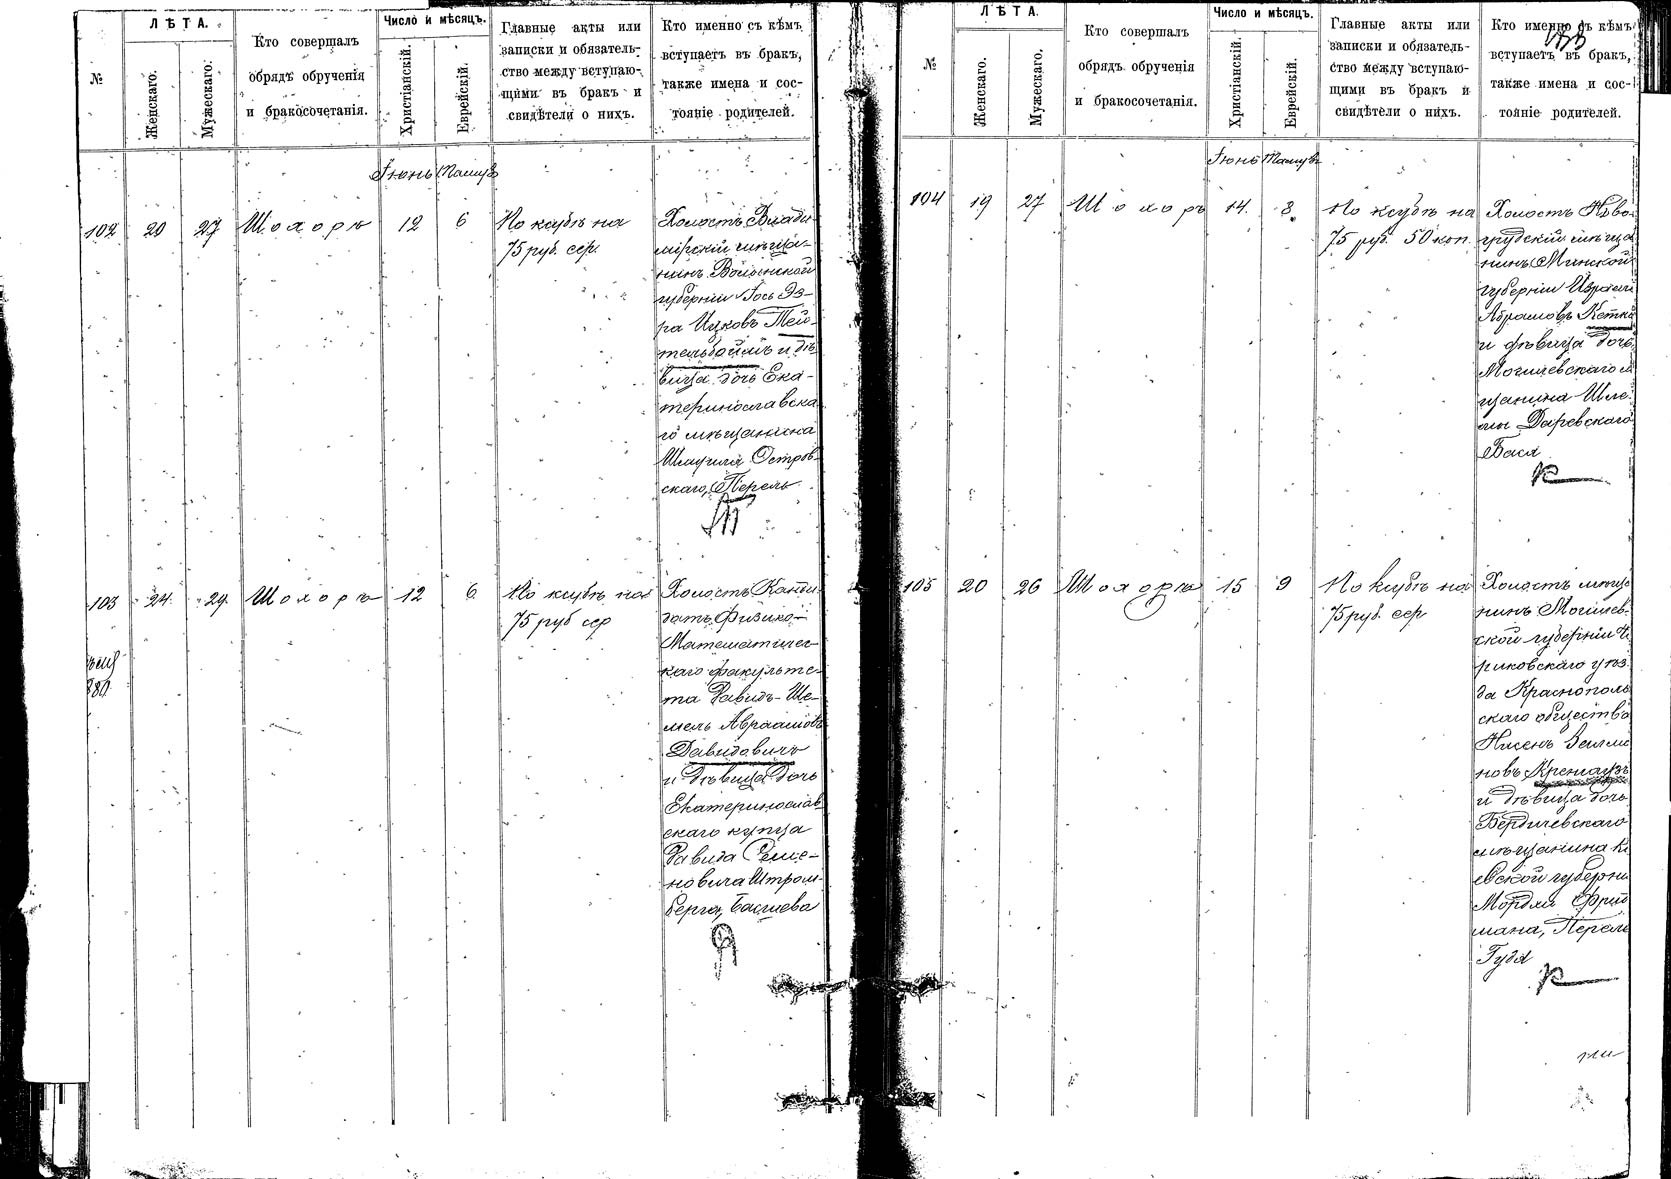 №
ЛѢТА.
Женскаго.
Мужескаго.
Кто совершалъ
обрядъ обрученія
и бракосочетанія.
Число и мѣсяцъ.
Христіанскій.
Еврейскій.
Главные акты или
записки и обязатель-
ство между вступаю-
щими въ бракъ и
свидѣтели о нихъ.
Кто именно съ кѣмъ
вступаетъ въ бракъ,
также имена и сос-
тояніе родителей.
Іюнь
102
20
27
Шохоръ
12
6
По ксубѣ на
75 руб. сер.
Холостъ Влади-
мірскій мѣща-
нинъ Волынской
губерніи Іось Эз-
ра Ицковъ Тей-
тельбоймъ и дѣ-
вица дочь Ека-
теринославска
го мѣщанина
Шмуиля Остров-
скаго, Перель
103
24
29
Шохоръ
12
6
По ксубѣ на
75 руб сер
Холостъ Канди-
датъ Физико-
Математичес-
каго факульте-
та Давидъ-Ше-
мель Авраамовъ
Давидовичъ
и дѣвица дочь
Екатеринослав
скаго купца
Давида
новича Штром
берга,
№
ЛѢТА.
Женскаго.
Мужескаго.
Кто совершалъ
обрядъ обрученія
и бракосочетанія.
Число и мѣсяцъ.
Христіанскій.
Еврейскій.
Главные акты или
записки и обязатель-
ство между вступаю-
щими въ бракъ и
свидѣтели о нихъ.
Кто именно съ кѣмъ
вступаетъ въ бракъ,
также имена и сос-
тояніе родителей.
Іюнь
104
19
27
Шохоръ
14.
8
По ксубѣ на
75 руб. 50 коп.
Холостъ Ново-
грудскій мѣща
нинъ Минской
губерніи Израиль
Абрамовъ
и дѣвица дочь
Могилевскаго м
щанина Шле-
мы Даревскаго
Бася
105
20
26
Шохоръ
15
9
По ксубѣ на
75 руб. сер
Холостъ мѣща
нинъ Могилев-
ской губерніи Че
риковскаго уѣз
да Краснополь
скаго общества
Нисенъ Залма
новъ
и дѣвица дочь
Бердичевскаго
мѣщанина Кі
евской губерніи
Мордки Фрид
мана, Перель
Гудя